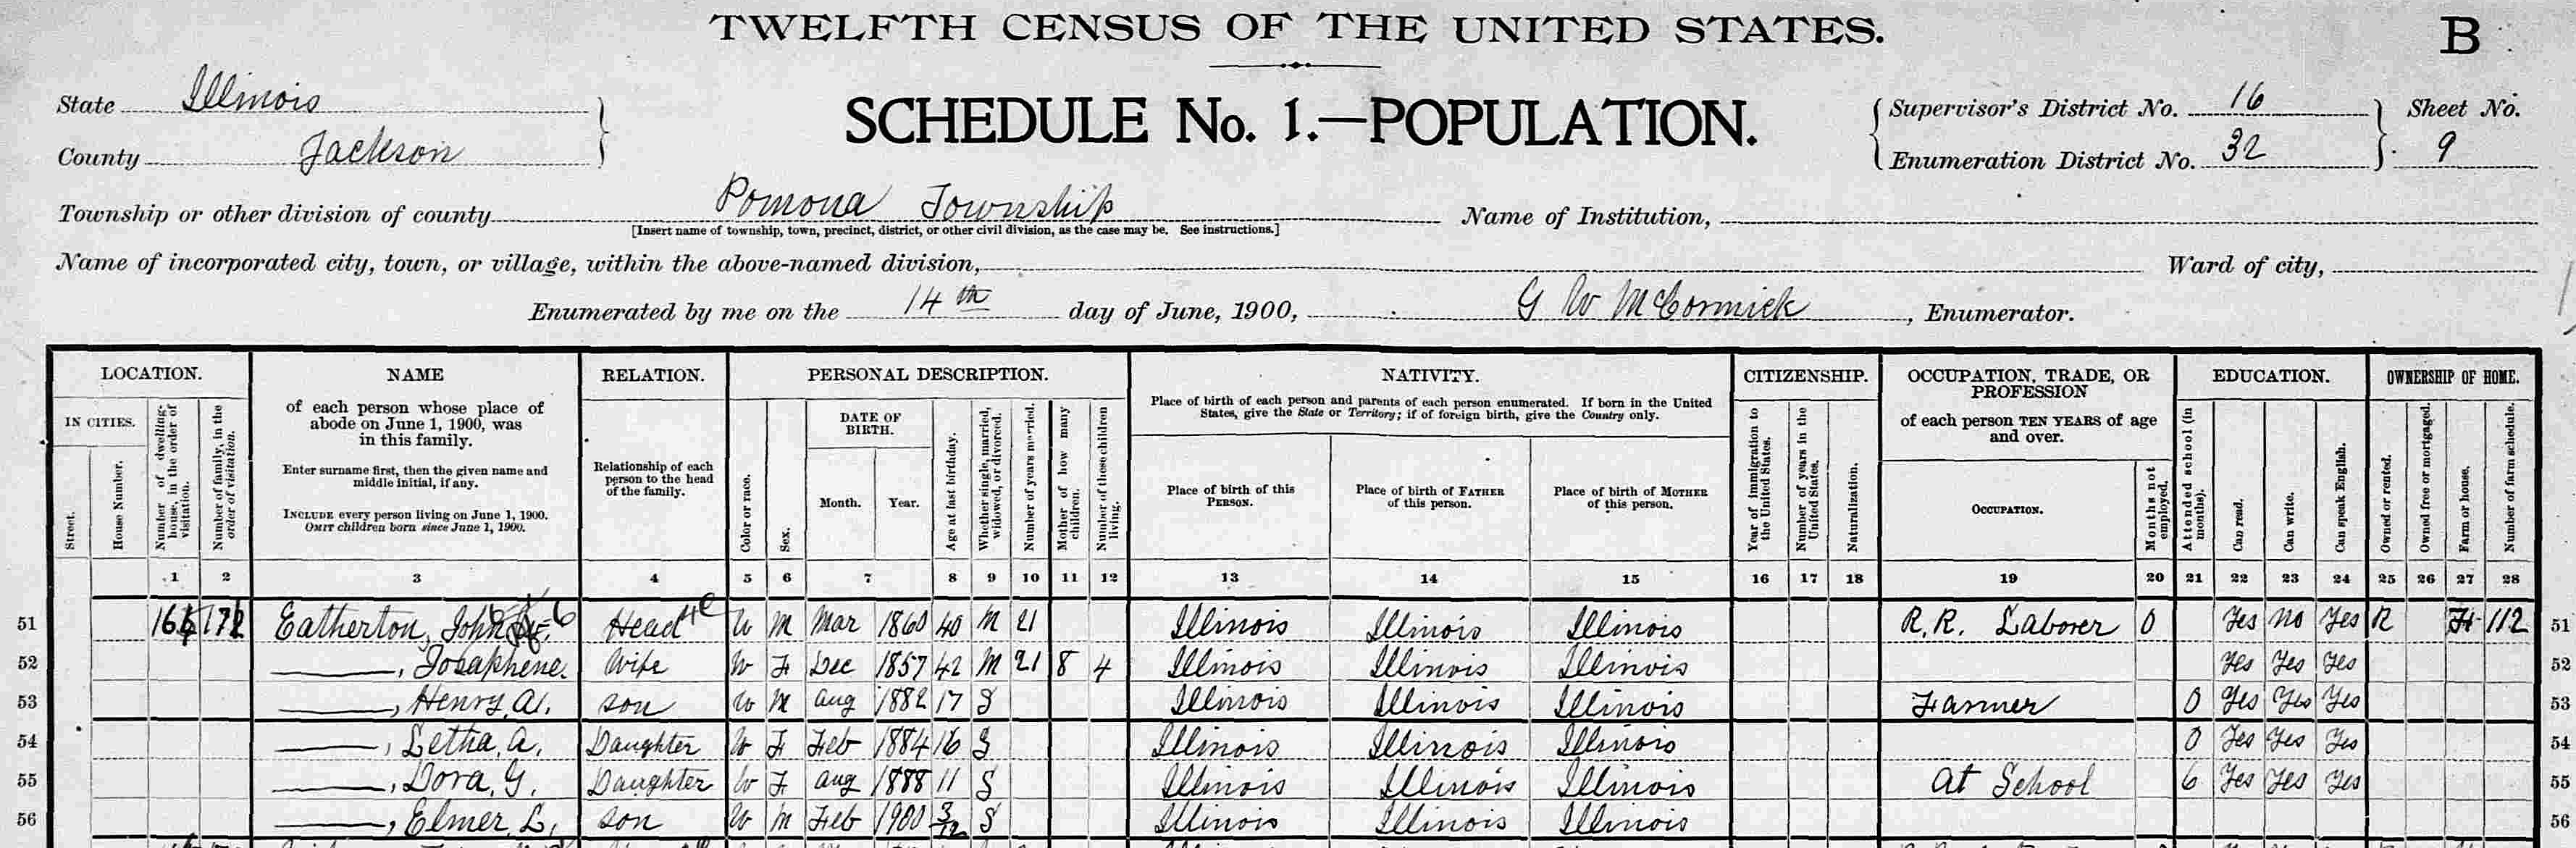 TWELFTH CENSUS OF THE UNITED STATES.
B
State Illinois
County Jackson
SCHEDULE No. 1.—POPULATION.
Supervisor's District No. 16
Enumeration District No. 32
Sheet No.
9
Township or other division of county Pomona Township
[Insert name of township, town, precinct, district, or other civil division, as the case may be. See instructions.]
Name of Institution,
Name of incorporated city, town, or village, within the above-named division,
Ward of city,
Enumerated by me on the 14th day of June, 1900, G W McCormick, Enumerator.
LOCATION.
IN CITIES.
Street.
House Number.
Number of dwelling-house, in the order of visitation.
Number of family, in the order of visitation.
NAME
of each person whose place of
abode on June 1, 1900, was
in this family.
Enter surname first, then the given name and
middle initial, if any.
INCLUDE every person living on June 1, 1900.
OMIT children born since June 1, 1900.
RELATION.
Relationship of each
person to the head
of the family.
PERSONAL DESCRIPTION.
Color or race.
Sex.
DATE OF
BIRTH.
Month.
Year.
Age at last birthday.
Whether single, married, widowed, or divorced.
Number of years married.
Mother of how many children.
Number of these children living.
NATIVITY.
Place of birth of each person and parents of each person enumerated. If born in the United
States, give the State or Territory; if of foreign birth, give the Country only.
Place of birth of this
PERSON.
Place of birth of FATHER
of this person.
Place of birth of MOTHER
of this person.
CITIZENSHIP.
Year of immigration to the United States.
Number of years in the United States.
Naturalization.
OCCUPATION, TRADE, OR
PROFESSION
of each person TEN YEARS of age
and over.
OCCUPATION.
Months not employed.
EDUCATION.
Attended school (in months).
Can read.
Can write.
Can speak English.
OWNERSHIP OF HOME.
Owned or rented.
Owned free or mortgaged.
Farm or house.
Number of farm schedule.
1 2 3 4 5 6 7 8 9 10 11 12 13 14 15 16 17 18 19 20 21 22 23 24 25 26 27 28
51 Eatherton, John Head W M Mar 1860 40 M 21 Illinois Illinois Illinois R.R. Laborer 0 Yes No Yes R 112 51
52 ——, Josaphene. Wife W F Dec 1857 42 M 21 8 4 Illinois Illinois Illinois Yes Yes Yes 52
53 ——, Henry, A. son W M Aug 1882 17 S Illinois Illinois Illinois Farmer 0 Yes Yes Yes 53
54 ——, Letha, A. Daughter W F Feb 1884 16 S Illinois Illinois Illinois 0 Yes Yes Yes 54
55 ——, Dora, G. Daughter W F Aug 1888 11 S Illinois Illinois Illinois At School 6 Yes Yes Yes 55
56 ——, Elmer, L. son W M Feb 1900 3/12 S Illinois Illinois Illinois 56